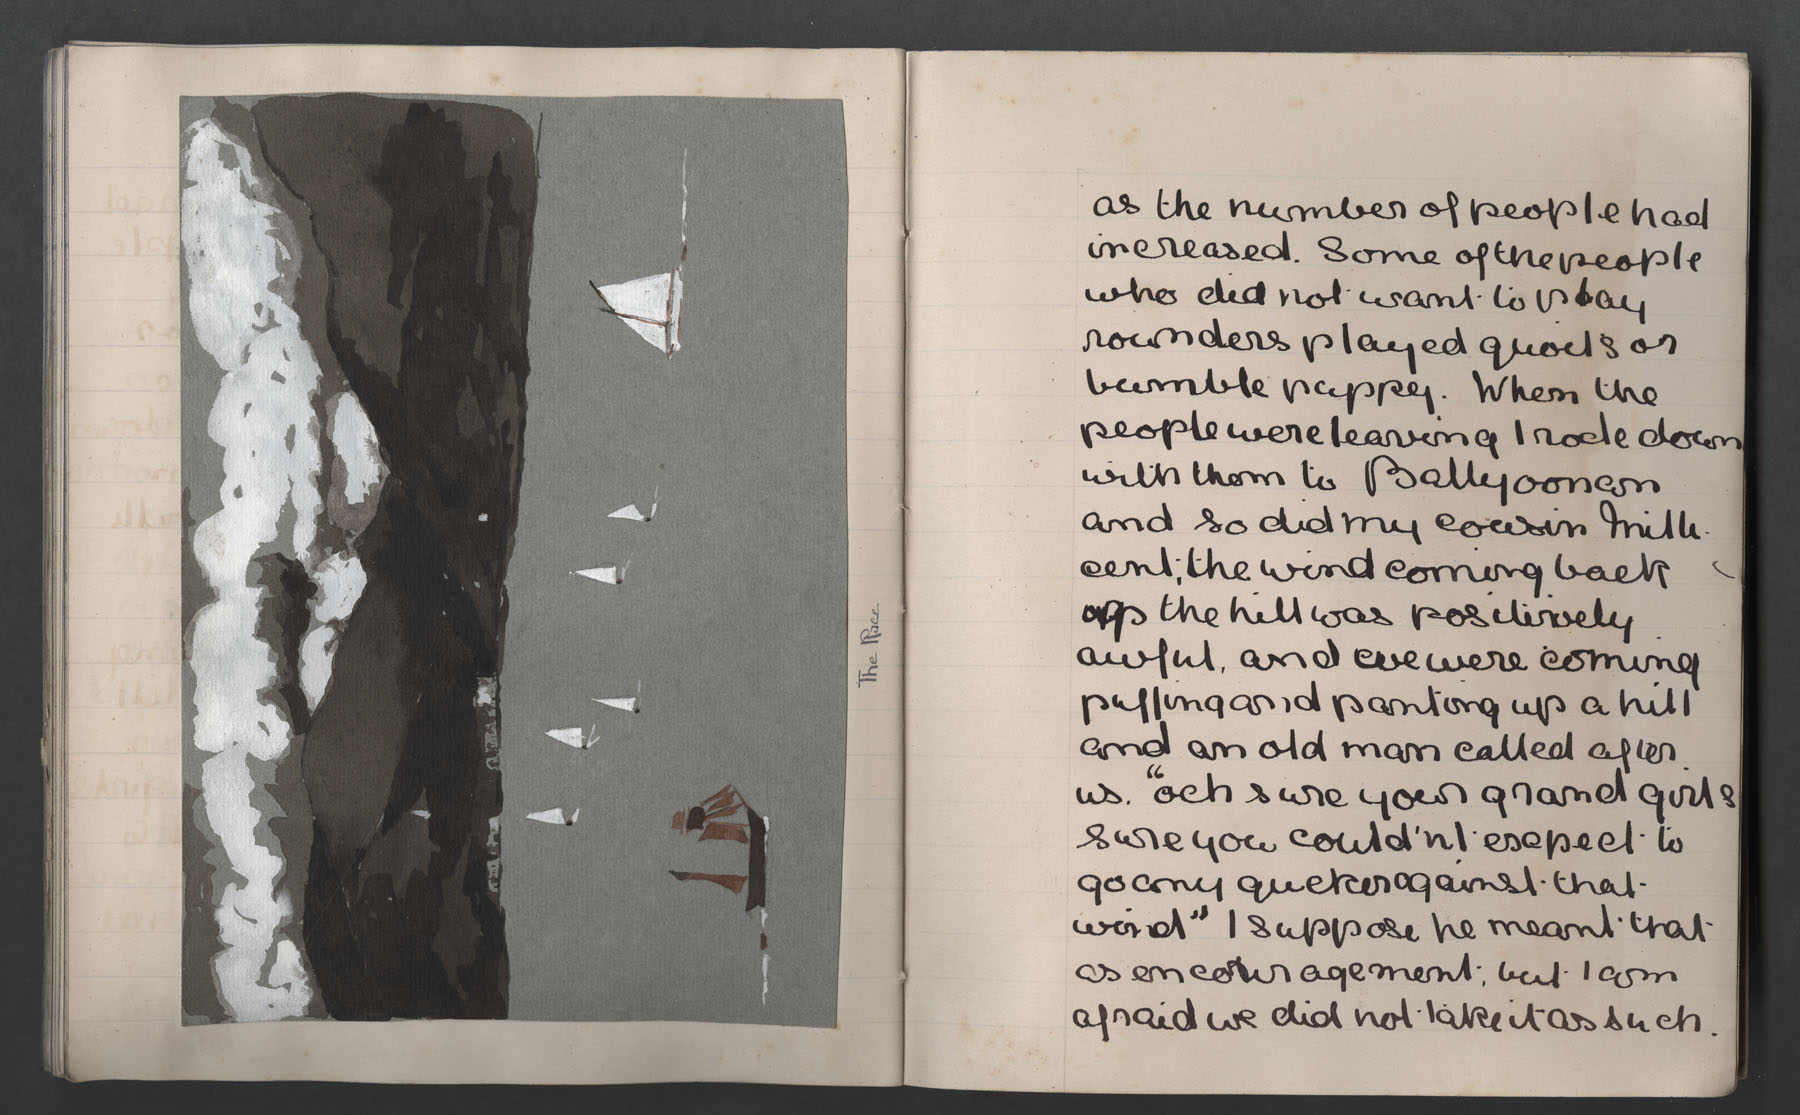 The Race
as the number of people had
increased. Some of the people
who did not want to play
rounders played quoits or
bumble puppy. When the
people were leaving I rode down
with them to Ballyoonan
and so did my cousin Milli-
cent; the wind coming back
up the hill was positively
awful, and we were coming
puffing and panting up a hill
and an old man called after
us. "och sure your grand girls
sure you could'nt exspect to
go any quicker against that
wind" I suppose he meant that
as encouragement; but I am
afraid we did not take it as such.